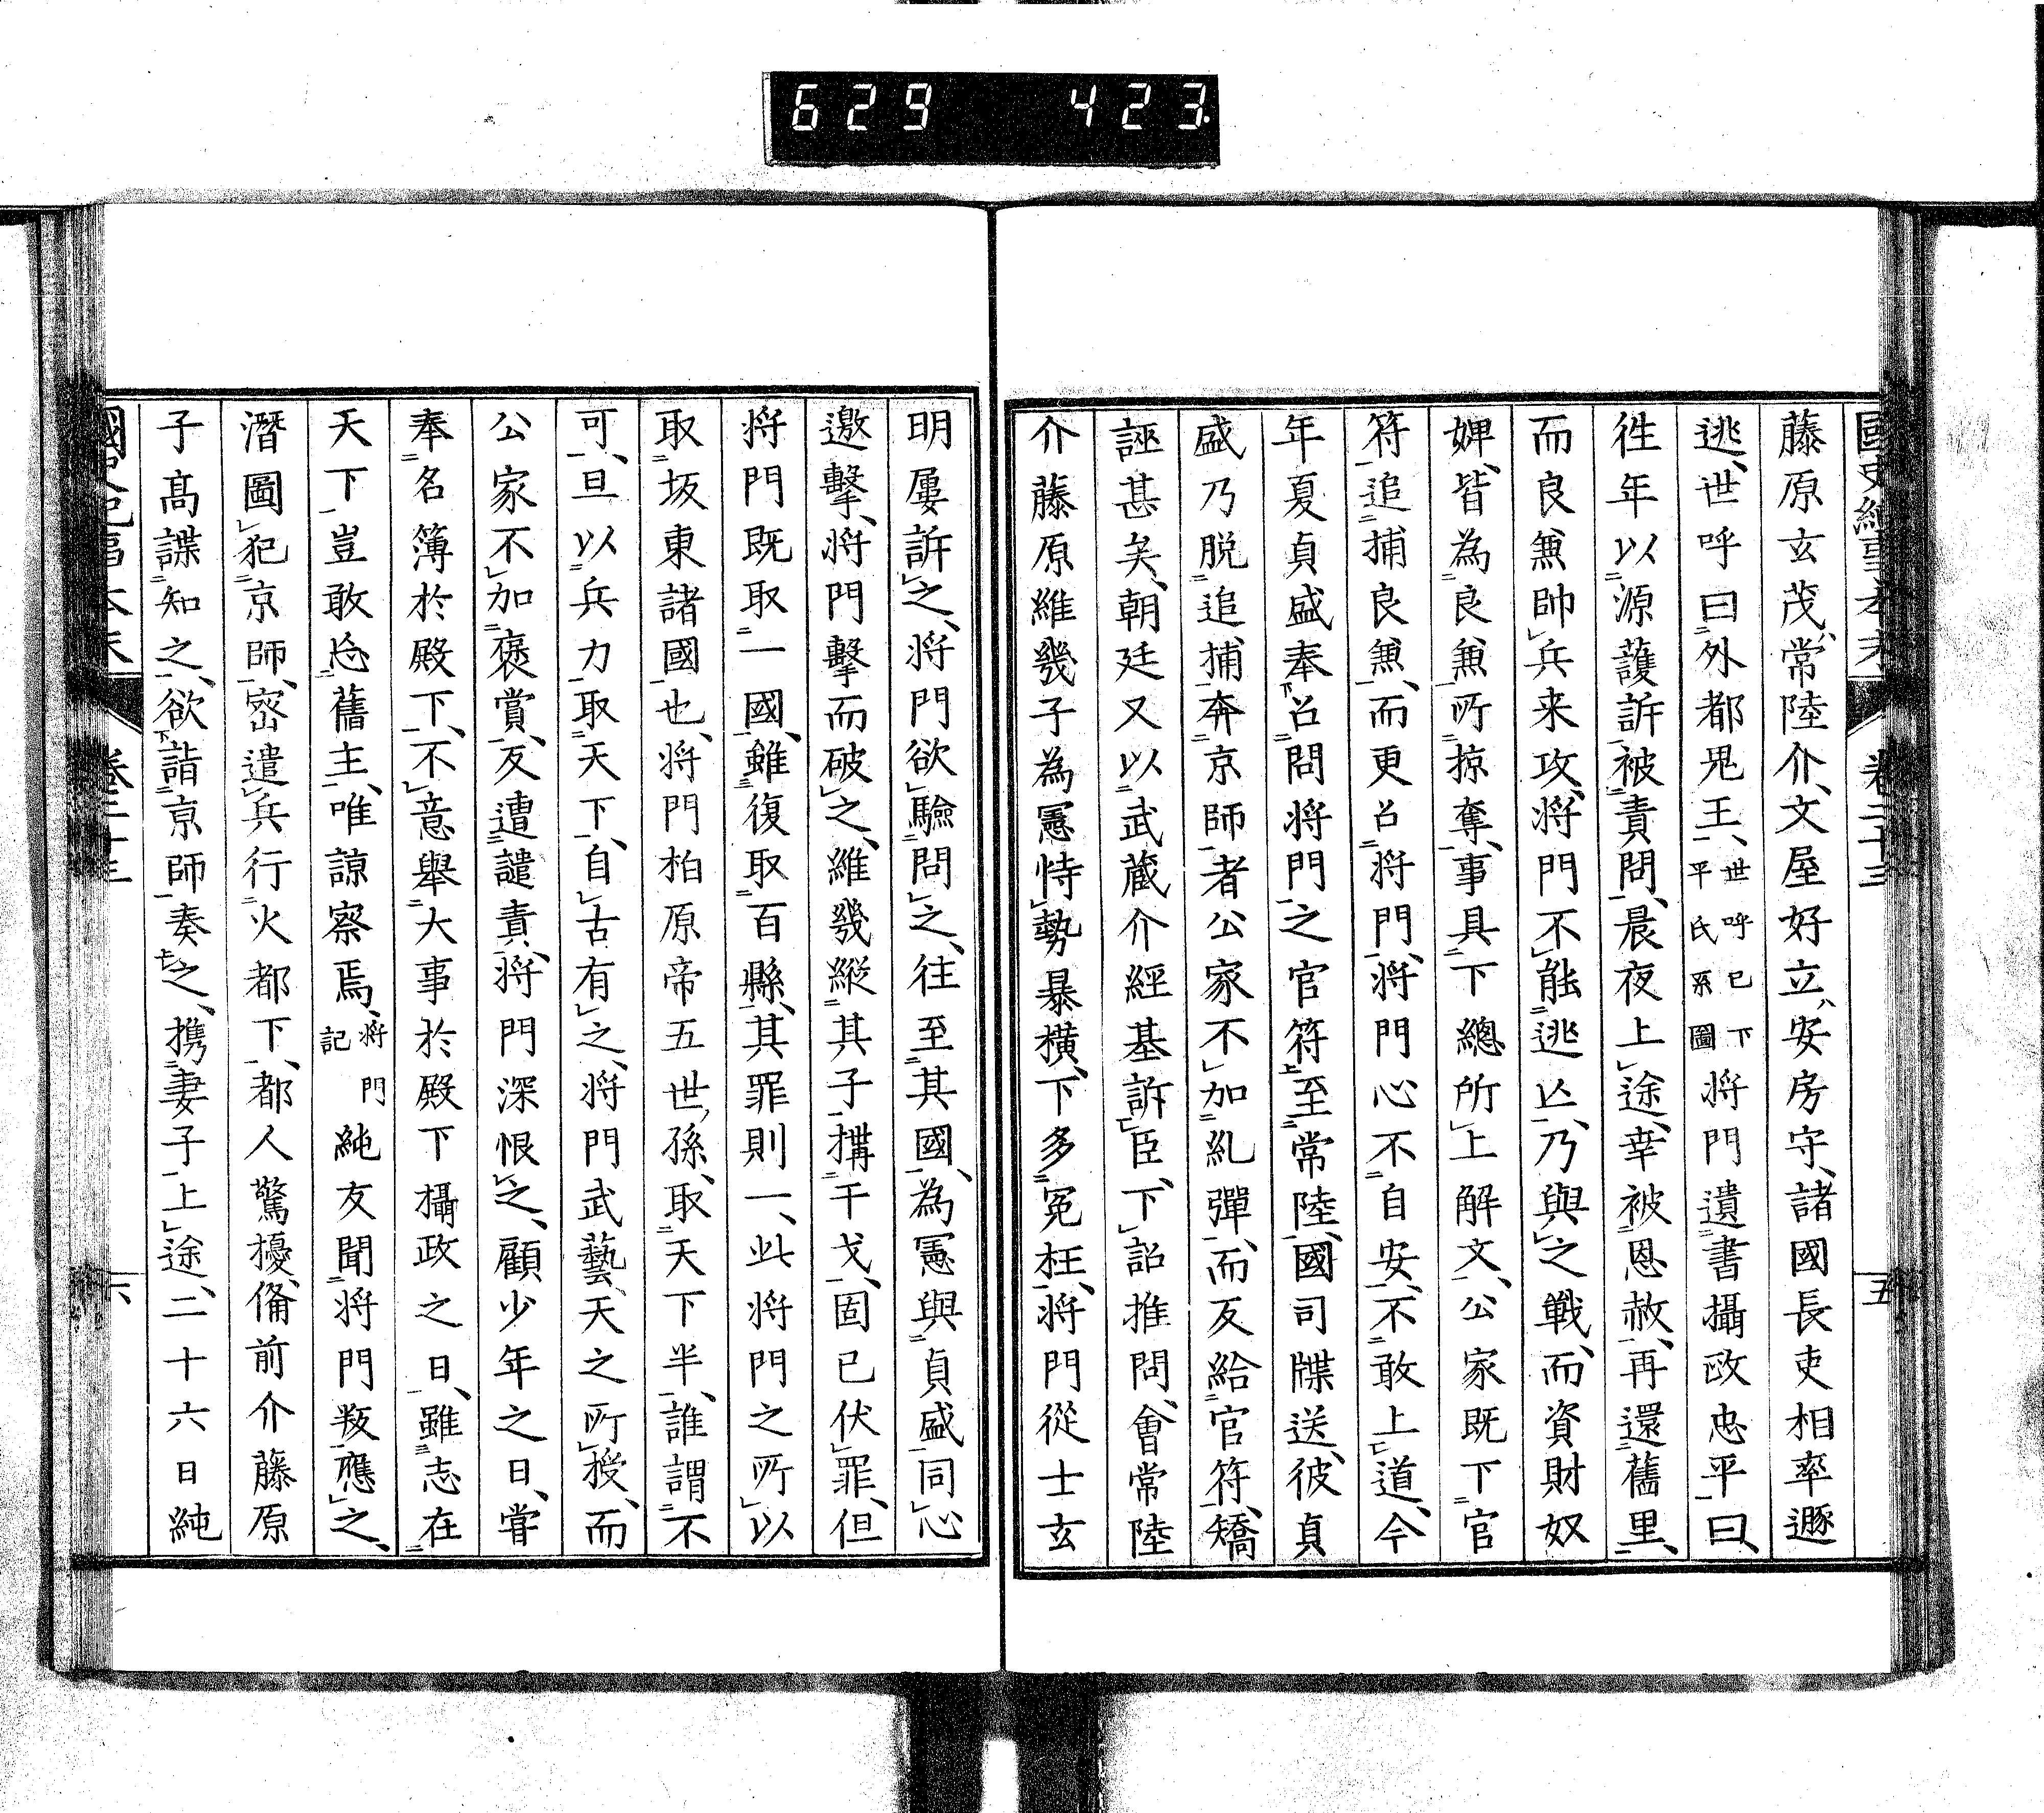 629 423
藤原玄茂、常陸介、文屋好立、安房守、諸國長吏相率遯
逃、世呼曰外都鬼王、世呼已下平氏系圖將門遺書攝政忠平曰、
徃年以源護訴被責問、晨夜上途、幸被恩赦、再還舊里、
而良兼帥兵来攻、将門不能逃亡、乃與之戰、而資財奴
婢、皆為良兼所掠奪、事具下總所上解文、公家既下官
符追捕良兼、而更召将門、将門心不自安、不敢上道、今
年夏貞盛奉召問将門之官符至常陸、國司牒送、彼貞
盛乃脱追捕、奔京師者公家不加糺彈、而反給官符、矯
誣甚矣、朝廷又以武蔵介經基訴臣、下詔推問、會常陸
介藤原維幾子為憲恃勢暴横、下多冤枉、将門從士玄
明屢訴之、将門欲驗問之、往至其國、為憲與貞盛同心
邀擊、将門擊而破之、維幾縱其子構干戈、固已伏罪、但
将門既取一國、雖復取百縣、其罪則一、此将門之所以
取坂東諸國也、将門柏原帝五世孫、取天下半、誰謂不
可、且以兵力取天下、自古有之、将門武藝、天之所授、而
公家不加褒賞、反遭譴責、将門深恨之、顧少年之日、嘗
奉名簿於殿下、不意舉大事於殿下攝政之日、雖志在
天下豈敢忘舊主、唯諒察焉、将門記純友聞将門叛應之、
潛圖犯京師、密遣兵行火都下、都人驚擾、備前介藤原
子髙諜知之、欲詣京師奏之、携妻子上途、二十六日純
卷二十三
五
六